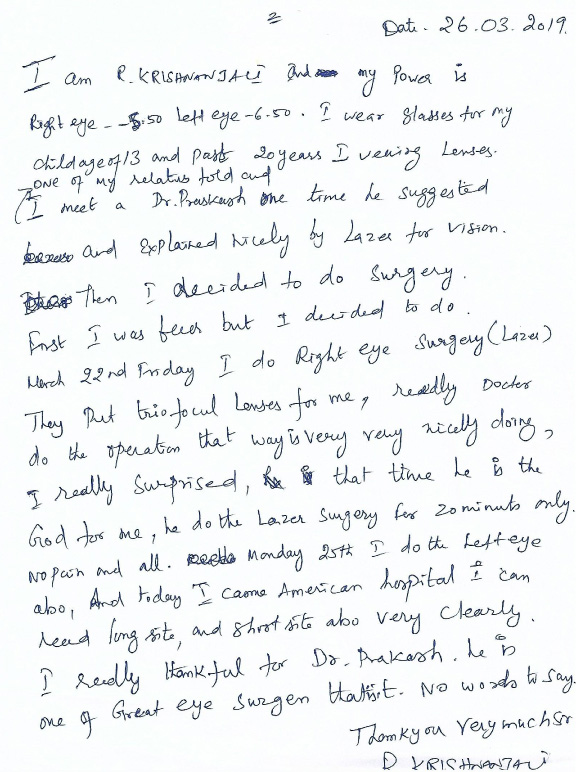 2
Date. 26.03.2019.
I am R. KRISHNANJALI and my Power is
Right eye - -5.50 Left eye -6.50. I wear glasses for my
child age of 13 and past 20 years I vearing Lenses.
one of my relatives told and
I meet a Dr. Praskash one time he suggested
and explained nicely by Lazer for vision.
Then I decided to do surgery.
First I was fear but I decided to do.
March 22nd Friday I do Right eye surgery (Lazer)
They Put triofocul Lenses for me, really Docter
do the operation that way is very very nicely doing,
I really surprised, that time he is the
God for me, he do the Lazer surgery for 20 minuts only.
No pain and all. Monday 25th I do the Left eye
also, And today I came American hospital I can
read long site, and short site also very clearly.
I really thankful for Dr. Prakash. he is
one of Great eye surgen that is it. No words to say.
Thankyou Very much Sir
KRISHNANJALI